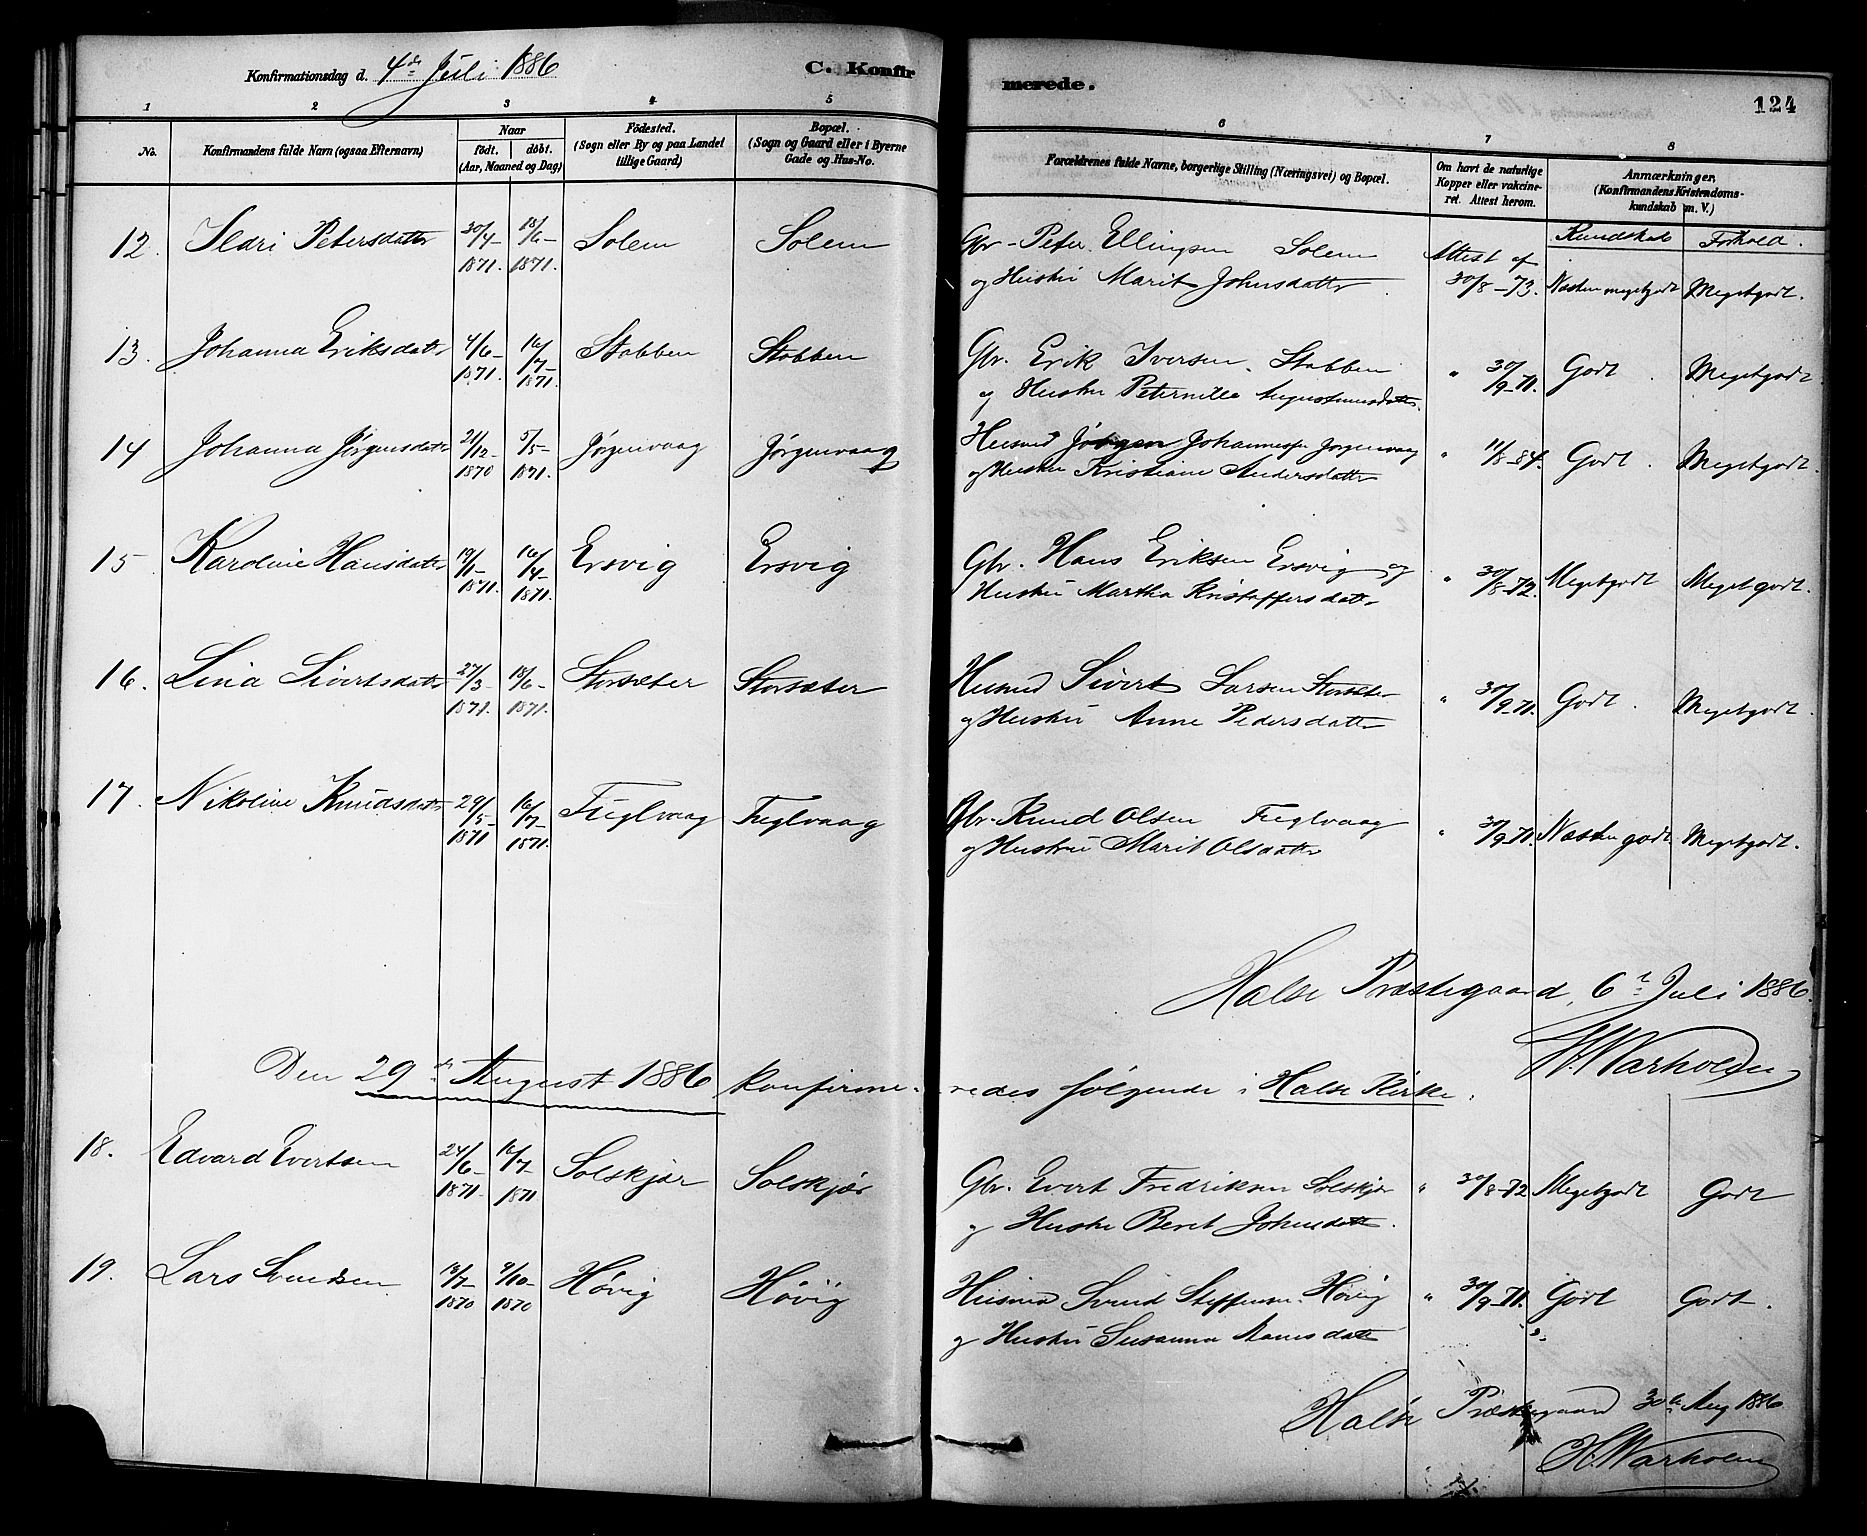 Konfirmationsdag d. 4de Juli 1886
C. Konfir
merede.
124
1 2 3 4 5 6 7 8
No.
Konfirmandens fulde Navn (ogsaa Efternavn)
Naar
født. døbt.
(Aar, Maaned og Dag)
Födested.
(Sogn eller By og paa Landet
tillige Gaard)
Bopæl.
(Sogn og Gaard eller i Byerne
Gade og Hus-No.
Forældrenes fulde Navne, borgerlige Stilling (Næringsvei) og Bopæl.
Om havt de naturlige
Kopper eller vakcine-
ret. Attest herom.
Anmærkninger,
(Konfirmandens Kristendoms-
kundskab m. V.)
Kundskab Forhold.
12. Ildri Petersdatter 30/4- 1871. 18/6- 1871. Solem Solem Gbr. Peter Ellingsen Solem Attest af
og Hustru Marit Johnsdatter 30/8-73. Næsten megetgodt Megetgodt.
13. Johanna Eriksdatr 4/6- 1871. 16/7- 1871. Stabben Stabben Gbr. Erik Iversen Stabben " 30/9-71. Godt. Megetgodt.
og Hustru Peternille Augustinusdatter.
14 Johanna Jørgensdatr 21/12- 1870 5/5- 1871. Jørgenvaag Jørgenvaag Husmd Jørgen Johannessen Jørgenvaag " 11/8-84. Godt. Megetgodt.
og Hustru Kristiane Andersdatter
15 Karoline Hansdatr 19/1- 1871. 16/4- 1871. Ersvig Ersvig Gbr. Hans Eriksen Ersvig og " 30/8-72. Megetgodt Megetgodt.
Hustru Martha Kristoffersdatr
16. Lina Sivertsdatr 27/3- 1871. 18/6- 1871. Storsæter Storsæter Husmd Sivert Larsen Storsæter " 30/9-71. Godt. Megetgodt.
og Hustru Anne Pedersdatter
17. Nikoline Knudsdatr 29/5- 1871 16/7- 1871. Fuglvaag Fuglvaag Gbr. Knud Olsen Fuglvaag " 30/9-71. Næsten godt. Megetgodt.
og Hustru Marit Olsdatter
Halse Præstegaard, 6te Juli 1886.
H. Warholm
Den 29de August 1886 konfirme-redes følgende i Halse Kirke.
18. Edvard Evertsen 24/6- 1871. 16/7- 1871 Solskjær Solskjær Gbr. Evert Fredriksen Solskjær " 30/8-72 Megetgodt Godt
og Hustru Beret Johnsdatter.
19. Lars Svendsen 1870 9/10- 1870 Høvig Høvig Husmd Svend Steffensen Høvig " 30/9-71. Godt Godt.
og Hustru Susanna datter
Halse Præstegaard 30te Aug 1886
H. Warholm